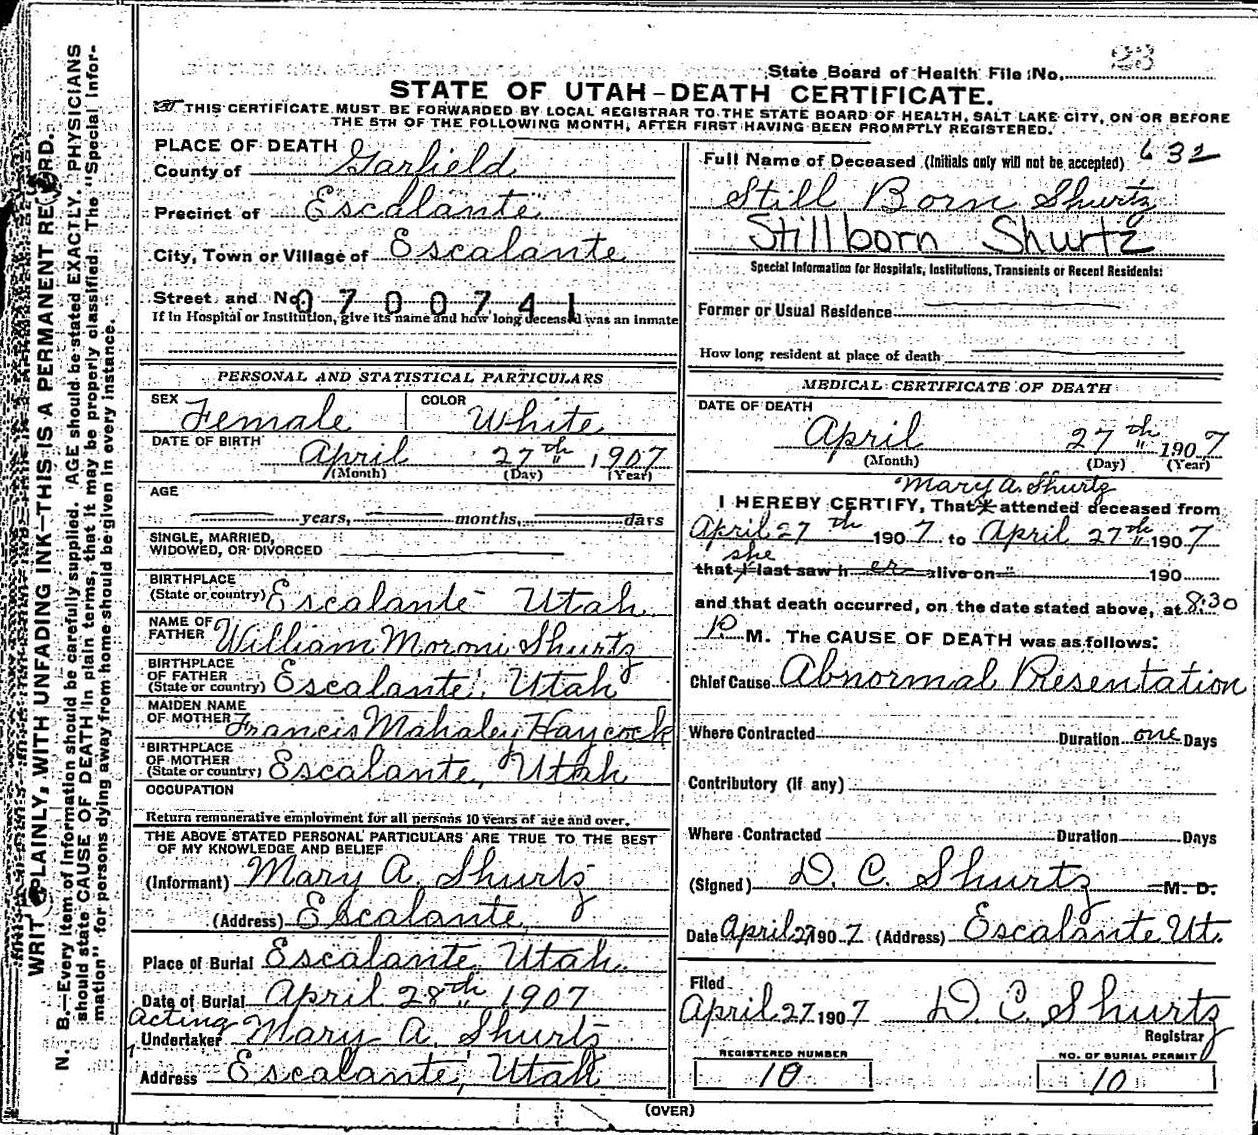 23
State Board of Health File No.
STATE OF UTAH-DEATH CERTIFICATE.
THIS CERTIFICATE MUST BE FORWARDED BY LOCAL REGISTRAR TO THE STATE BOARD OF HEALTH, SALT LAKE CITY, ON OR BEFORE
THE 5TH OF THE FOLLOWING MONTH, AFTER FIRST HAVING BEEN PROMPTLY REGISTERED.
PLACE OF DEATH
County of Garfield
Precinct of Escalante
City, Town or Village of Escalante
Street and No. 0700741
If in Hospital or Institution, give its name and how long deceased was an inmate
PERSONAL AND STATISTICAL PARTICULARS
SEX Female COLOR White
DATE OF BIRTH April 27th 1907
(Month) (Day) (Year)
AGE
years, months, days
SINGLE, MARRIED,
WIDOWED, OR DIVORCED
BIRTHPLACE
(State or country) Escalante Utah
NAME OF
FATHER William Moroni Shurtz
BIRTHPLACE
OF FATHER
(State or country) Escalante, Utah
MAIDEN NAME
OF MOTHER Francis Mahaley Haycock
BIRTHPLACE
OF MOTHER
(State or country) Escalante, Utah
OCCUPATION
Return remunerative employment for all persons 10 years of age and over.
THE ABOVE STATED PERSONAL PARTICULARS ARE TRUE TO THE BEST
OF MY KNOWLEDGE AND BELIEF
(Informant) Mary A. Shurtz
(Address) Escalante,
Place of Burial Escalante, Utah.
Date of Burial April 28th 1907
acting
Undertaker Mary A. Shurtz
Address Escalante, Utah
Full Name of Deceased (Initials only will not be accepted) 632
Still Born Shurtz
Stillborn Shurtz
Special Information for Hospitals, Institutions, Transients or Recent Residents:
Former or Usual Residence
How long resident at place of death
MEDICAL CERTIFICATE OF DEATH
DATE OF DEATH
April 27th 1907
(Month) (Day) (Year)
Mary A. Shurtz
I HEREBY CERTIFY, That I attended deceased from
April 27th 1907 to April 27th 1907
she
that I last saw her alive on " 190
and that death occurred, on the date stated above, at 8:30
P. M. The CAUSE OF DEATH was as follows:
Chief Cause Abnormal Presentation
Where Contracted Duration one Days
Contributory (if any)
Where Contracted Duration Days
(Signed) D. C. Shurtz M. D.
Date April 27 1907 (Address) Escalante Ut.
Filed
April 27 1907 D. C. Shurtz
Registrar
REGISTERED NUMBER
10
NO. OF BURIAL PERMIT
10
(OVER)
WRITE PLAINLY, WITH UNFADING INK—THIS IS A PERMANENT RECORD.
N. B.—Every item of information should be carefully supplied. AGE should be stated EXACTLY. PHYSICIANS
should state CAUSE OF DEATH in plain terms, that it may be properly classified. The "Special Infor-
mation" for persons dying away from home should be given in every instance.